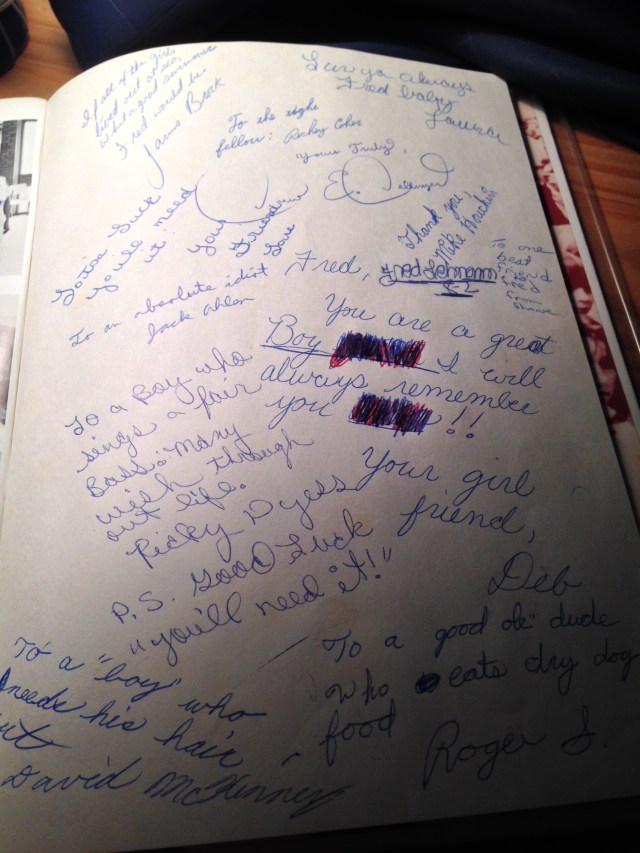 If all of the girls
lived out at sea,
what a good swimmer
Fred would be.
James Brock
Luv ya always
Fred baby
To the right
fellow: Rickey
Yours Truly,
E.
Lotsa luck
you'll need
it
Your
Friend
Love
Thank you,
Mike
To one
best
friend
Fred
from
To an absolute idiot
Jack
Fred,
Fred Lehmann
You are a great
Boy
I will
always remember
you !!
Your girl
friend,
Deb
To a Boy who
sings a fair
Bass. Many
wish through
out life.
Ricky Dyess
P.S. Good Luck
"you'll need it!"
To a "boy" who
needs his hair
cut
David McKinney
To a good ole dude
who eats dry dog
food
Roger S.